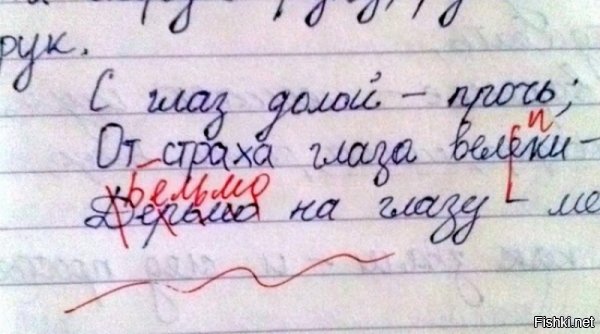 рук.
С глаз долой – прочь;
и
От страха глаза велеки –
Бельмо
Дерьмо на глазу – ме
Fishki.net